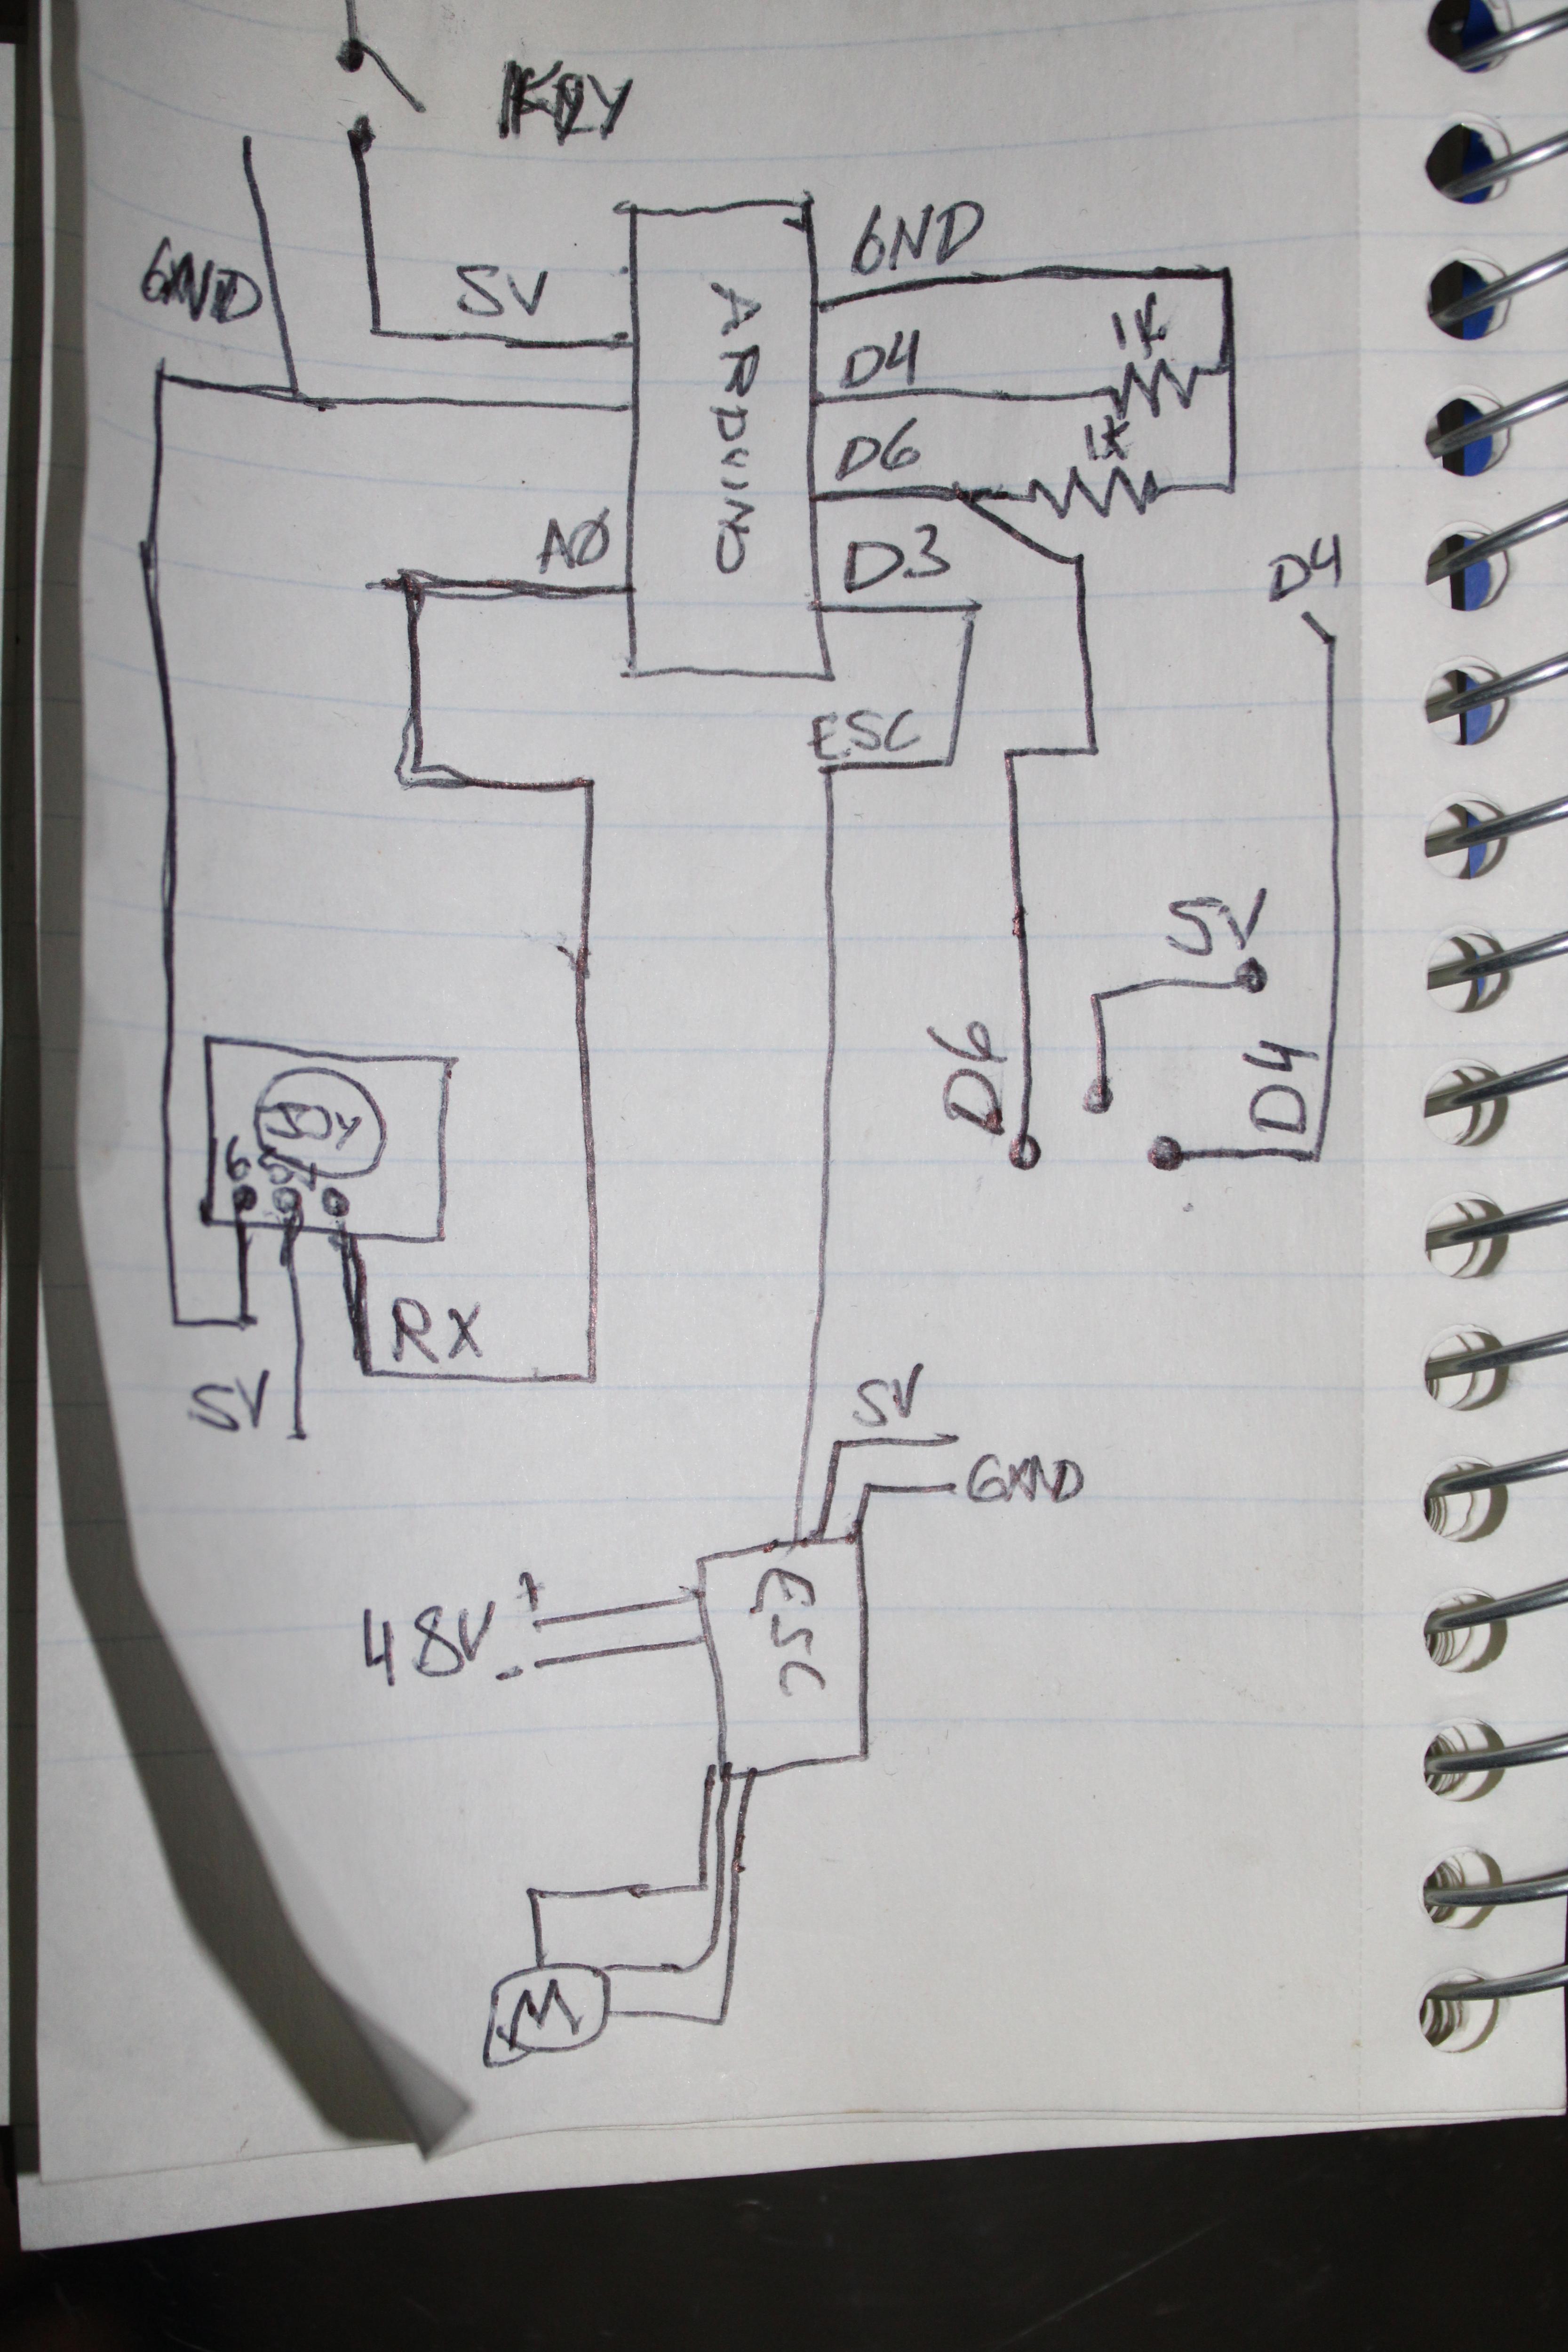 KEY
GND
GND
5V
1K
D4
1K
D6
ARDUINO
AØ
D3
D4
ESC
5V
D6
D4
JOY
G
5V
RX
5V
5V
GND
ESC
48V + -
M